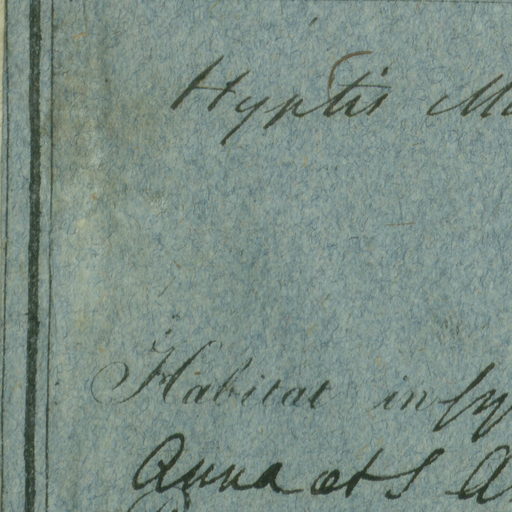 Hyptis M
Habitat in sy
Anna et S A